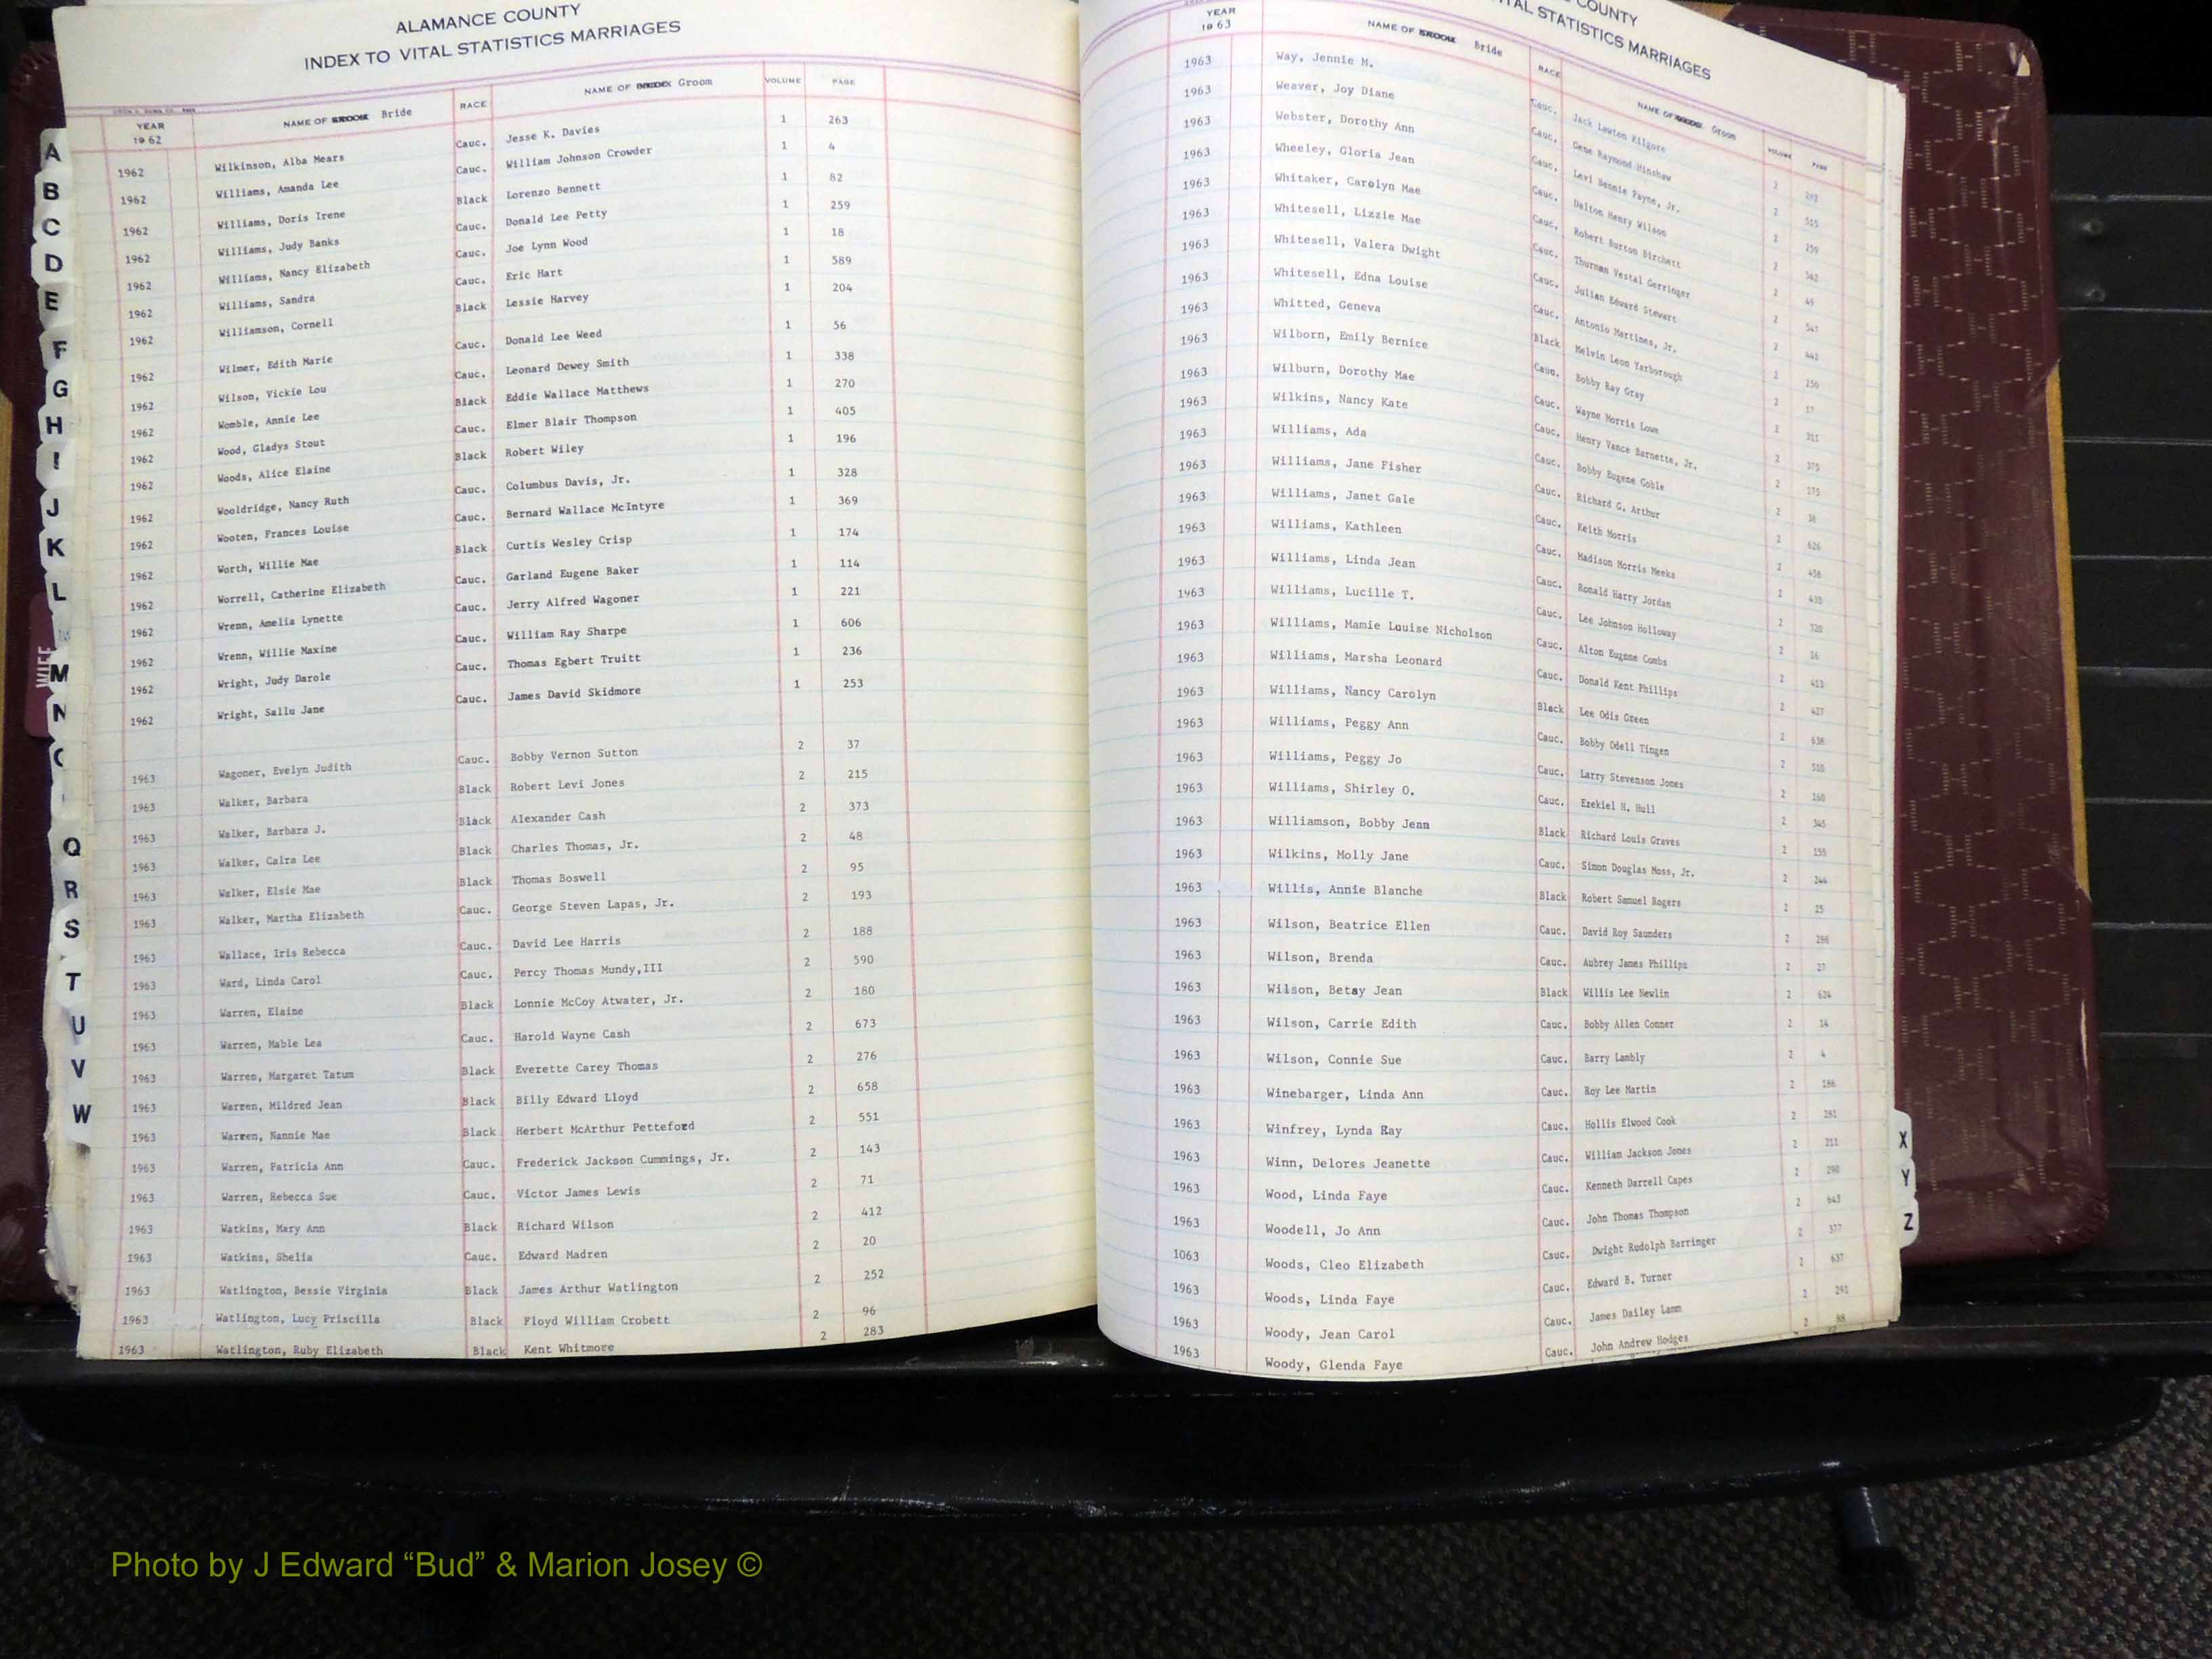 ALAMANCE COUNTY
INDEX TO VITAL STATISTICS MARRIAGES
YEAR NAME OF GROOM Bride RACE NAME OF BRIDE Groom VOLUME PAGE
1962
1962 Wilkinson, Alba Mears Cauc. Jesse K. Davies 1 263
1962 Williams, Amanda Lee Cauc. William Johnson Crowder 1 4
1962 Williams, Doris Irene Black Lorenzo Bennett 1 82
1962 Williams, Judy Banks Cauc. Donald Lee Petty 1 259
1962 Williams, Nancy Elizabeth Cauc. Joe Lynn Wood 1 18
1962 Williams, Sandra Cauc. Eric Hart 1 589
1962 Williamson, Cornell Black Lessie Harvey 1 204
1962 Wilmer, Edith Marie Cauc. Donald Lee Weed 1 56
1962 Wilson, Vickie Lou Cauc. Leonard Dewey Smith 1 338
1962 Womble, Annie Lee Black Eddie Wallace Matthews 1 270
1962 Wood, Gladys Stout Cauc. Elmer Blair Thompson 1 405
1962 Woods, Alice Elaine Black Robert Wiley 1 196
1962 Wooldridge, Nancy Ruth Cauc. Columbus Davis, Jr. 1 328
1962 Wooten, Frances Louise Cauc. Bernard Wallace McIntyre 1 369
1962 Worth, Willie Mae Black Curtis Wesley Crisp 1 174
1962 Worrell, Catherine Elizabeth Cauc. Garland Eugene Baker 1 114
1962 Wrenn, Amelia Lynette Cauc. Jerry Alfred Wagoner 1 221
1962 Wrenn, Willie Maxine Cauc. William Ray Sharpe 1 606
1962 Wright, Judy Darole Cauc. Thomas Egbert Truitt 1 236
1962 Wright, Sallu Jane Cauc. James David Skidmore 1 253
1963 Wagoner, Evelyn Judith Cauc. Bobby Vernon Sutton 2 37
1963 Walker, Barbara Black Robert Levi Jones 2 215
1963 Walker, Barbara J. Black Alexander Cash 2 373
1963 Walker, Calra Lee Black Charles Thomas, Jr. 2 48
1963 Walker, Elsie Mae Black Thomas Boswell 2 95
1963 Walker, Martha Elizabeth Cauc. George Steven Lapas, Jr. 2 193
1963 Wallace, Iris Rebecca Cauc. David Lee Harris 2 188
1963 Ward, Linda Carol Cauc. Percy Thomas Mundy,III 2 590
1963 Warren, Elaine Black Lonnie McCoy Atwater, Jr. 2 180
1963 Warren, Mable Lea Cauc. Harold Wayne Cash 2 673
1963 Warren, Margaret Tatum Black Everette Carey Thomas 2 276
1963 Warren, Mildred Jean Black Billy Edward Lloyd 2 658
1963 Warren, Nannie Mae Black Herbert McArthur Petteford 2 551
1963 Warren, Patricia Ann Cauc. Frederick Jackson Cummings, Jr. 2 143
1963 Warren, Rebecca Sue Cauc. Victor James Lewis 2 71
1963 Watkins, Mary Ann Black Richard Wilson 2 412
1963 Watkins, Shelia Cauc. Edward Madren 2 20
1963 Watlington, Bessie Virginia Black James Arthur Watlington 2 252
1963 Watlington, Lucy Priscilla Black Floyd William Crobett 2 96
1963 Watlington, Ruby Elizabeth Black Kent Whitmore 2 283
A
B
C
D
E
F
G
H
I
J
K
L
M
N
Q
R
S
T
U
V
W
WIFE
COUNTY
VITAL STATISTICS MARRIAGES
YEAR NAME OF GROOM Bride RACE NAME OF BRIDE Groom VOLUME PAGE
1963
1963 Way, Jennie M. Cauc. Jack Lawton Kilgore 2
1963 Weaver, Joy Diane Cauc. Gene Raymond Hinshaw 2 515
1963 Webster, Dorothy Ann Cauc. Levi Bennie Payne, Jr. 2 259
1963 Wheeley, Gloria Jean Cauc. Dalton Henry Wilson 2 542
1963 Whitaker, Carolyn Mae Cauc. Robert Burton Birchett 2
1963 Whitesell, Lizzie Mae Cauc. Thurman Vestal Gerringer 2
1963 Whitesell, Valera Dwight Cauc. Julian Edward Stewart 2 642
1963 Whitesell, Edna Louise Cauc. Antonio Martines, Jr. 2 250
1963 Whitted, Geneva Black Melvin Leon Yarborough 2
1963 Wilborn, Emily Bernice Cauc. Bobby Ray Gray 2 311
1963 Wilburn, Dorothy Mae Cauc. Wayne Morris Lowe 2 375
1963 Wilkins, Nancy Kate Cauc. Henry Vance Barnette, Jr. 2 275
1963 Williams, Ada Cauc. Bobby Eugene Goble 2
1963 Williams, Jane Fisher Cauc. Richard G. Arthur 2 626
1963 Williams, Janet Gale Cauc. Keith Morris 2 458
1963 Williams, Kathleen Cauc. Madison Morris Meeks 2
1963 Williams, Linda Jean Cauc. Ronald Harry Jordan 2 320
1963 Williams, Lucille T. Cauc. Lee Johnson Holloway 2 16
1963 Williams, Mamie Louise Nicholson Cauc. Alton Eugene Combs 2 413
1963 Williams, Marsha Leonard Cauc. Donald Kent Phillips 2 427
1963 Williams, Nancy Carolyn Black Lee Odis Green 2 638
1963 Williams, Peggy Ann Cauc. Bobby Odell Tingen 2 510
1963 Williams, Peggy Jo Cauc. Larry Stevenson Jones 2 160
1963 Williams, Shirley O. Cauc. Ezekiel H. Hull 2 345
1963 Williamson, Bobby Jean Black Richard Louis Graves 2 155
1963 Wilkins, Molly Jane Cauc. Simon Douglas Moss, Jr. 2 244
1963 Willis, Annie Blanche Black Robert Samuel Rogers 2 25
1963 Wilson, Beatrice Ellen Cauc. David Roy Saunders 2 286
1963 Wilson, Brenda Cauc. Aubrey James Phillips 2 27
1963 Wilson, Betsy Jean Black Willis Lee Newlin 2 624
1963 Wilson, Carrie Edith Cauc. Bobby Allen Conner 2 14
1963 Wilson, Connie Sue Cauc. Barry Lambly 2 4
1963 Winebarger, Linda Ann Cauc. Roy Lee Martin 2 186
1963 Winfrey, Lynda Ray Cauc. Hollis Elwood Cook 2 281
1963 Winn, Delores Jeanette Cauc. William Jackson Jones 2 211
1963 Wood, Linda Faye Cauc. Kenneth Darrell Capes 2 298
1963 Woodell, Jo Ann Cauc. John Thomas Thompson 2 643
1063 Woods, Cleo Elizabeth Cauc. Dwight Rudolph Barringer 2 377
1963 Woods, Linda Faye Cauc. Edward B. Turner 2 637
1963 Woody, Jean Carol Cauc. James Dailey Lamm 2 291
1963 Woody, Glenda Faye Cauc. John Andrew Hodges 2 88
X
Y
Z
Photo by J Edward “Bud” & Marion Josey ©